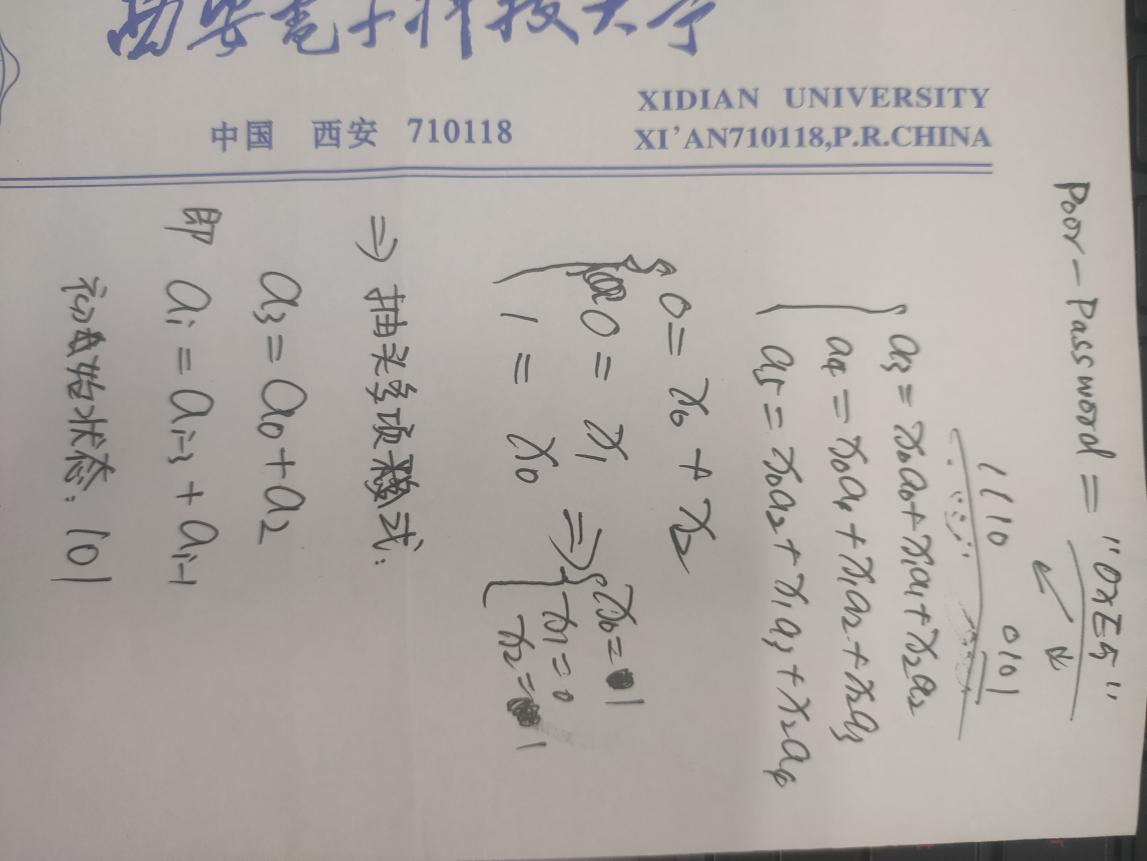 西安电子科技大学
XIDIAN UNIVERSITY
中国 西安 710118
XI'AN710118,P.R.CHINA
Poor-Password = "0xE5"
1110 0101
a3 = x0a0 + x1a1 + x2a2
a4 = x0a1 + x1a2 + x2a3
a5 = x0a2 + x1a3 + x2a4
0 = x0 + x2
0 = x1 ⇒ { x0 = 1
1 = x0 x1 = 0
x2 = 1
⇒ 抽头多项式:
a3 = a0 + a2
即 ai = ai-3 + ai-1
初始状态: 101